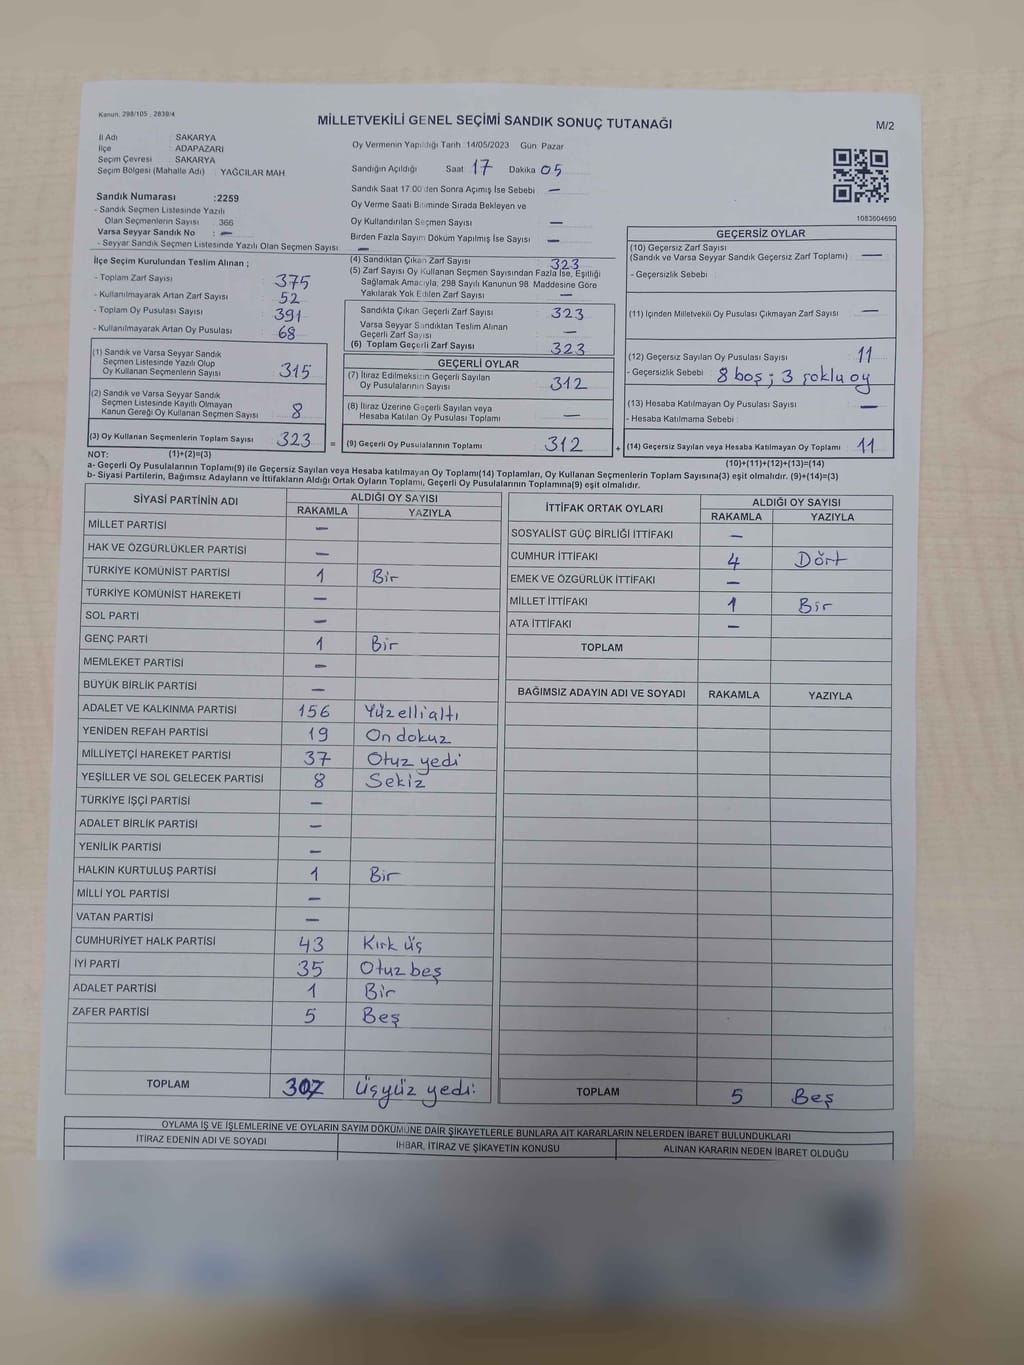 Kanun, 298/105 , 2839/4
MİLLETVEKİLİ GENEL SEÇİMİ SANDIK SONUÇ TUTANAĞI
M/2
İl Adı SAKARYA
İlçe : ADAPAZARI
Seçim Çevresi : SAKARYA
Seçim Bölgesi (Mahalle Adı) : YAĞCILAR MAH.
Oy Vermenin Yapıldığı Tarih :14/05/2023 Gün: Pazar
Sandığın Açıldığı Saat 17 Dakika 05
Sandık Saat 17:00 den Sonra Açılmış İse Sebebi —
Oy Verme Saati Bitiminde Sırada Bekleyen ve
Oy Kullandırılan Seçmen Sayısı —
Birden Fazla Sayım Döküm Yapılmış İse Sayısı —
1083604690
Sandık Numarası :2259
- Sandık Seçmen Listesinde Yazılı
Olan Seçmenlerin Sayısı : 366
Varsa Seyyar Sandık No : —
- Seyyar Sandık Seçmen Listesinde Yazılı Olan Seçmen Sayısı : —
İlçe Seçim Kurulundan Teslim Alınan ;
- Toplam Zarf Sayısı 375
- Kullanılmayarak Artan Zarf Sayısı 52
- Toplam Oy Pusulası Sayısı 391
- Kullanılmayarak Artan Oy Pusulası 68
(1) Sandık ve Varsa Seyyar Sandık
Seçmen Listesinde Yazılı Olup
Oy Kullanan Seçmenlerin Sayısı 315
(2) Sandık ve Varsa Seyyar Sandık
Seçmen Listesinde Kayıtlı Olmayan
Kanun Gereği Oy Kullanan Seçmen Sayısı 8
(3) Oy Kullanan Seçmenlerin Toplam Sayısı 323 =
(4) Sandıktan Çıkan Zarf Sayısı 323
(5) Zarf Sayısı Oy Kullanan Seçmen Sayısından Fazla İse, Eşitliği
Sağlamak Amacıyla, 298 Sayılı Kanunun 98. Maddesine Göre
Yakılarak Yok Edilen Zarf Sayısı —
Sandıkta Çıkan Geçerli Zarf Sayısı 323
Varsa Seyyar Sandıktan Teslim Alınan
Geçerli Zarf Sayısı —
(6) Toplam Geçerli Zarf Sayısı 323
GEÇERLİ OYLAR
(7) İtiraz Edilmeksizin Geçerli Sayılan
Oy Pusulalarının Sayısı 312
(8) İtiraz Üzerine Geçerli Sayılan veya
Hesaba Katılan Oy Pusulası Toplamı —
(9) Geçerli Oy Pusulalarının Toplamı 312 +
GEÇERSİZ OYLAR
(10) Geçersiz Zarf Sayısı
(Sandık ve Varsa Seyyar Sandık Geçersiz Zarf Toplamı) —
- Geçersizlik Sebebi :
(11) İçinden Milletvekili Oy Pusulası Çıkmayan Zarf Sayısı —
(12) Geçersiz Sayılan Oy Pusulası Sayısı 11
- Geçersizlik Sebebi : 8 boş ; 3 çoklu oy
(13) Hesaba Katılmayan Oy Pusulası Sayısı —
- Hesaba Katılmama Sebebi :
(14) Geçersiz Sayılan veya Hesaba Katılmayan Oy Toplamı 11
NOT: (1)+(2)=(3)
(10)+(11)+(12)+(13)=(14)
a- Geçerli Oy Pusulalarının Toplamı(9) ile Geçersiz Sayılan veya Hesaba katılmayan Oy Toplamı(14) Toplamları, Oy Kullanan Seçmenlerin Toplam Sayısına(3) eşit olmalıdır. (9)+(14)=(3)
b- Siyasi Partilerin, Bağımsız Adayların ve İttifakların Aldığı Ortak Oyların Toplamı, Geçerli Oy Pusulalarının Toplamına(9) eşit olmalıdır.
SİYASİ PARTİNİN ADI ALDIĞI OY SAYISI
RAKAMLA YAZIYLA
MİLLET PARTİSİ —
HAK VE ÖZGÜRLÜKLER PARTİSİ —
TÜRKİYE KOMÜNİST PARTİSİ 1 Bir
TÜRKİYE KOMÜNİST HAREKETİ —
SOL PARTİ —
GENÇ PARTİ 1 Bir
MEMLEKET PARTİSİ —
BÜYÜK BİRLİK PARTİSİ —
ADALET VE KALKINMA PARTİSİ 156 Yüzellialtı
YENİDEN REFAH PARTİSİ 19 On dokuz
MİLLİYETÇİ HAREKET PARTİSİ 37 Otuz yedi
YEŞİLLER VE SOL GELECEK PARTİSİ 8 Sekiz
TÜRKİYE İŞÇİ PARTİSİ —
ADALET BİRLİK PARTİSİ —
YENİLİK PARTİSİ —
HALKIN KURTULUŞ PARTİSİ 1 Bir
MİLLİ YOL PARTİSİ —
VATAN PARTİSİ —
CUMHURİYET HALK PARTİSİ 43 Kırk üç
İYİ PARTİ 35 Otuz beş
ADALET PARTİSİ 1 Bir
ZAFER PARTİSİ 5 Beş
TOPLAM 307 Üçyüz yedi
İTTİFAK ORTAK OYLARI ALDIĞI OY SAYISI
RAKAMLA YAZIYLA
SOSYALİST GÜÇ BİRLİĞİ İTTİFAKI —
CUMHUR İTTİFAKI 4 Dört
EMEK VE ÖZGÜRLÜK İTTİFAKI —
MİLLET İTTİFAKI 1 Bir
ATA İTTİFAKI —
TOPLAM
BAĞIMSIZ ADAYIN ADI VE SOYADI RAKAMLA YAZIYLA
TOPLAM 5 Beş
OYLAMA İŞ VE İŞLEMLERİNE VE OYLARIN SAYIM DÖKÜMÜNE DAİR ŞİKAYETLERLE BUNLARA AİT KARARLARIN NELERDEN İBARET BULUNDUKLARI
İTİRAZ EDENİN ADI VE SOYADI İHBAR, İTİRAZ VE ŞİKAYETİN KONUSU ALINAN KARARIN NEDEN İBARET OLDUĞU